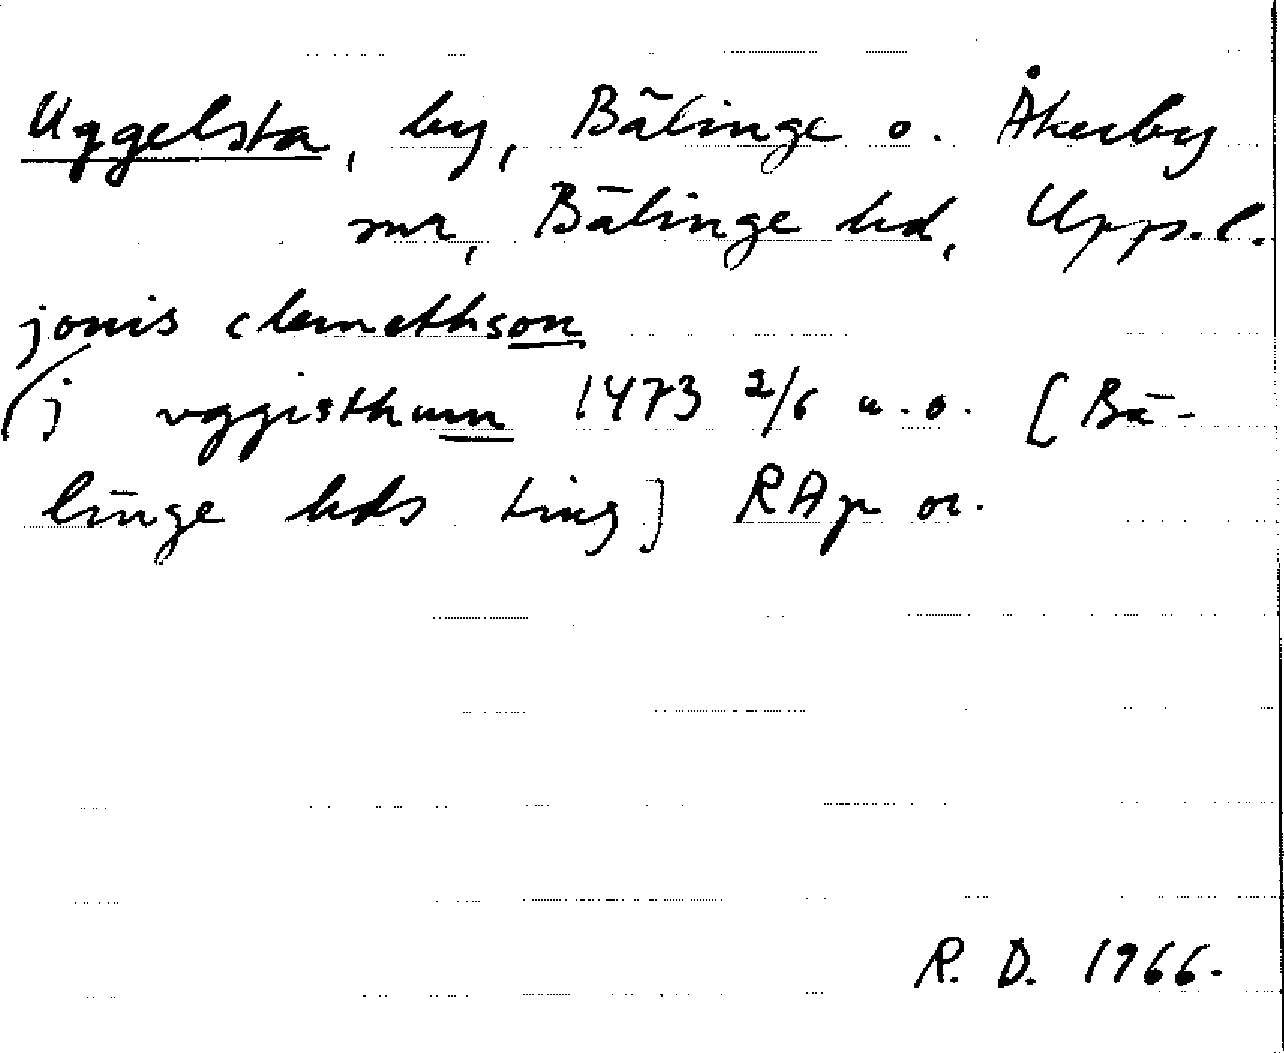 Uggelsta, by, Bälinge o. Åkerby
snr, Bälinge hd, Uppl.
jonis clemethson
(j vggisthum 1473 2/6 u.o. [Bä-
linge hds ting] RAp or.
R. D. 1966.